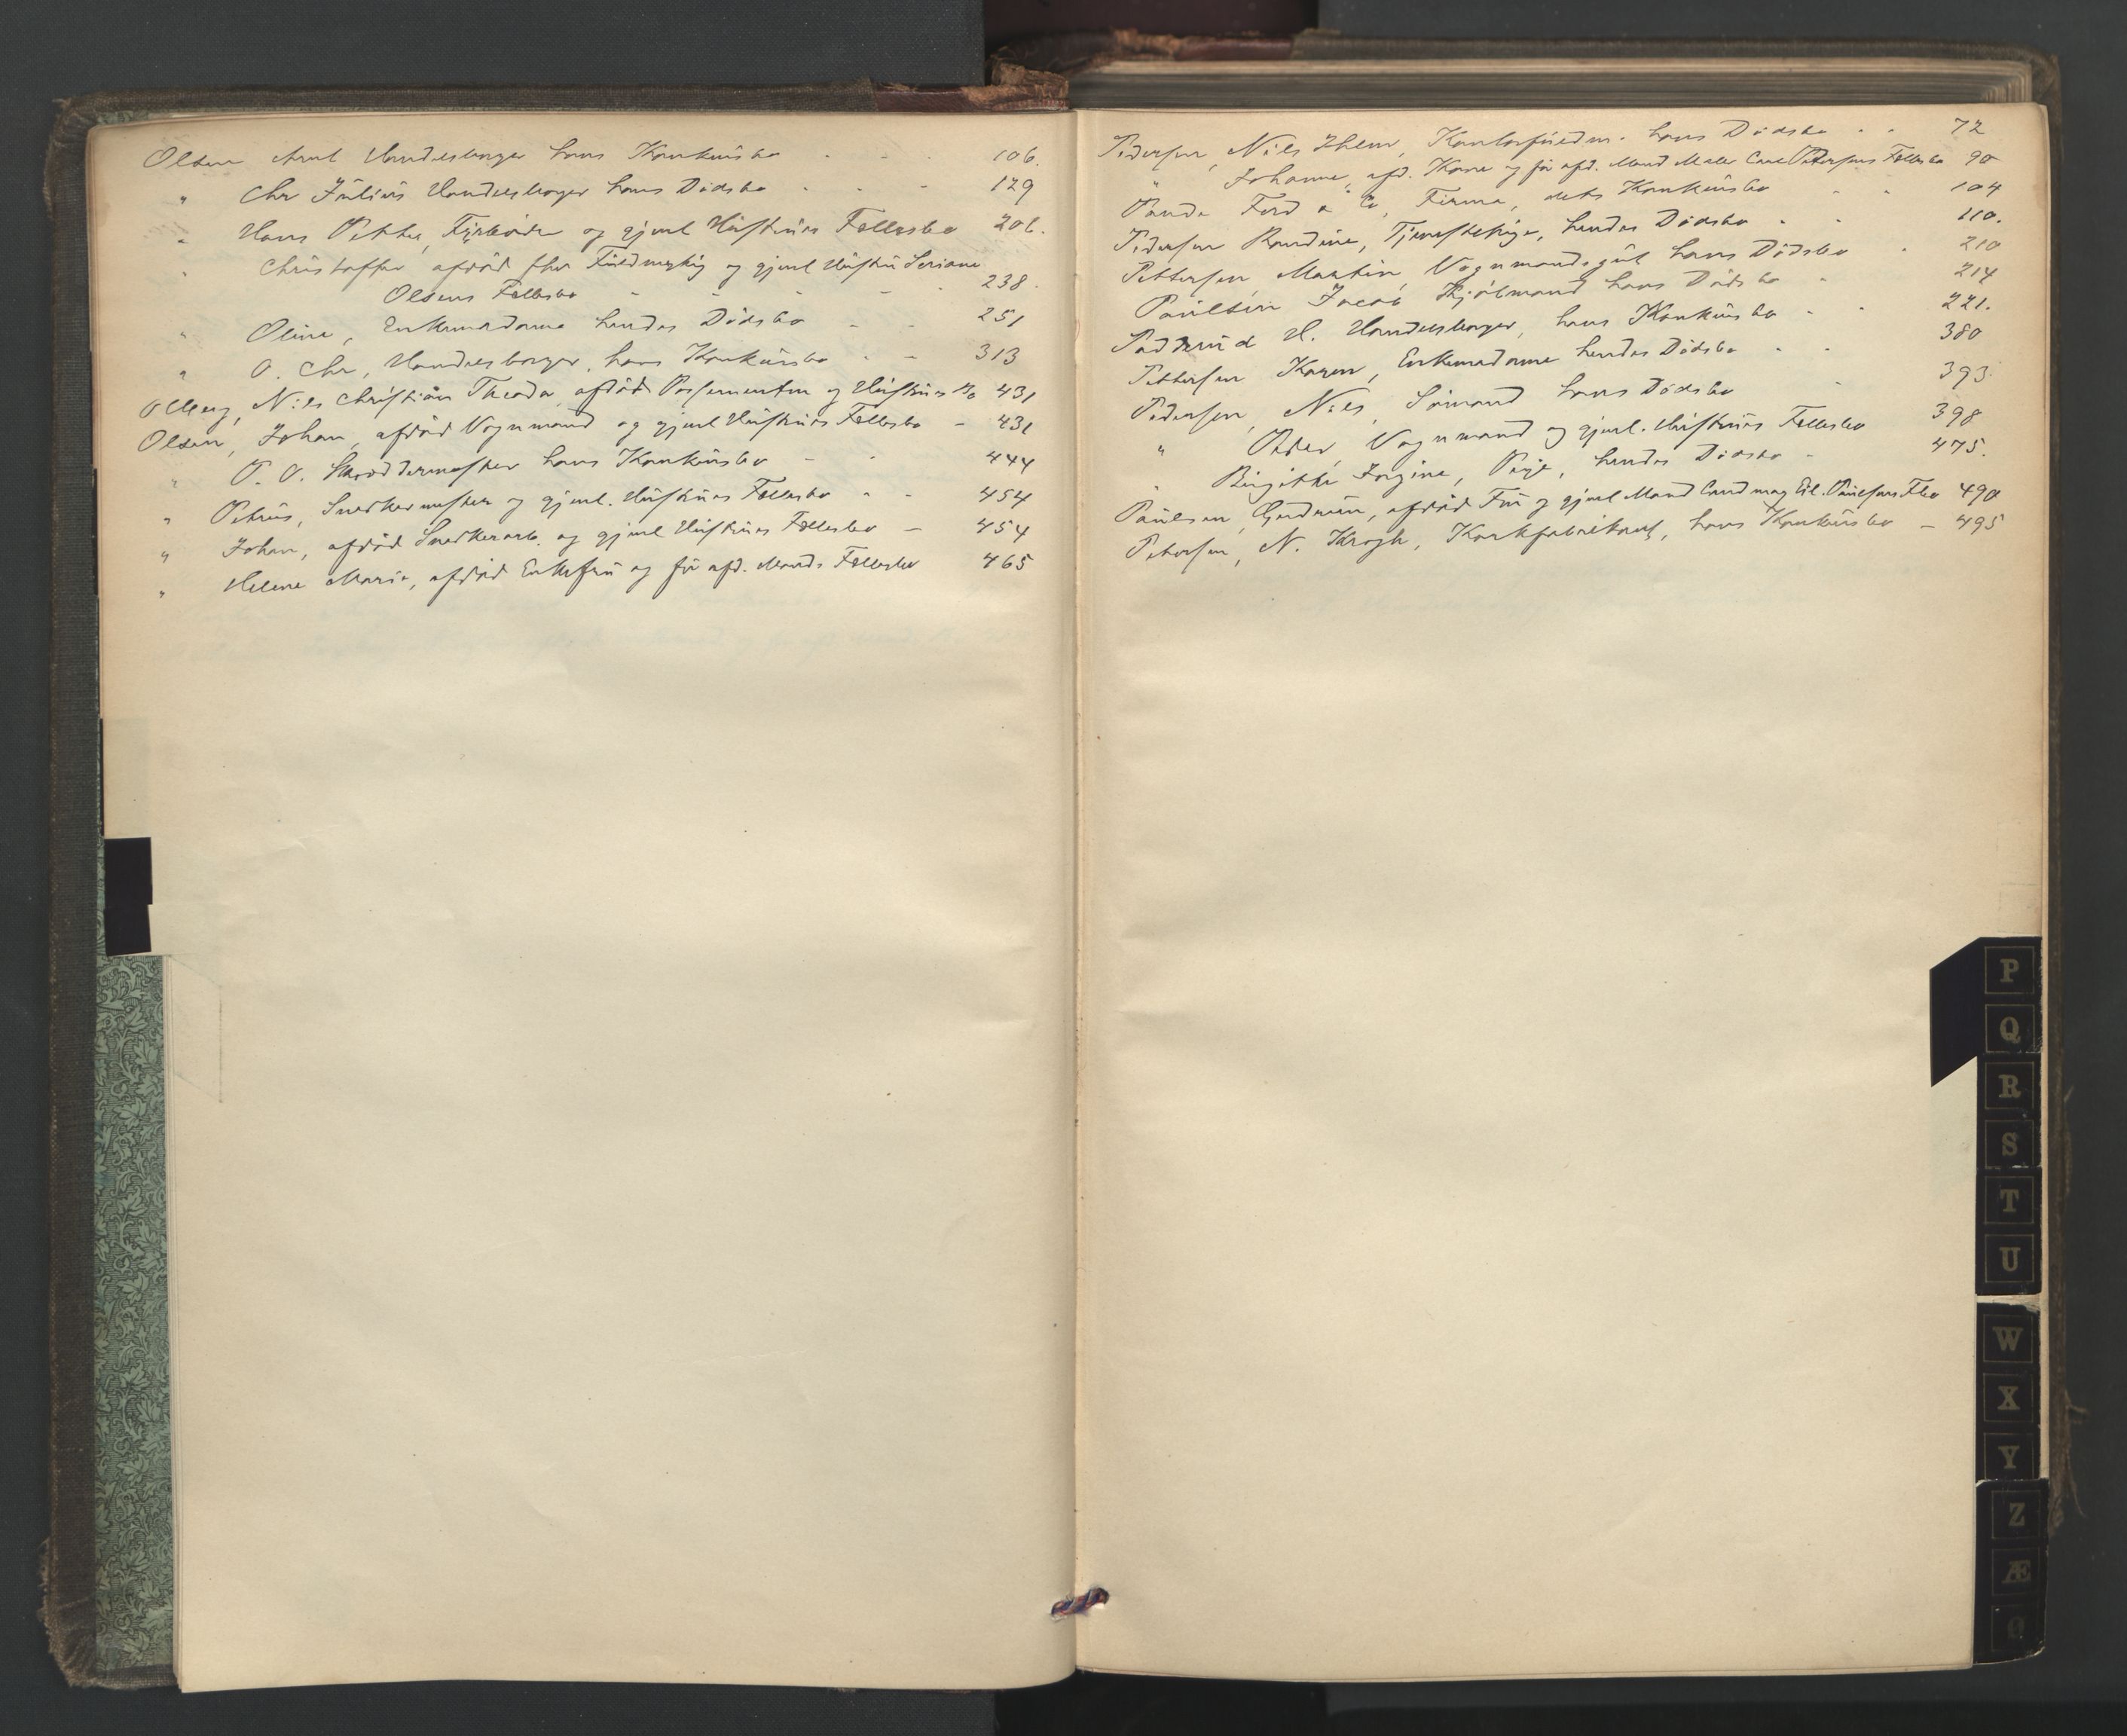 Olsen Arnt Handelsborger hans Konkursbo - - - 106.
" Chr Julius Handelsborger hans Dødsbo - - - 129
" Hans Petter, Fyrbøder og gjenl Hustrues Fællesbo 206.
" Christoffer afdød fhv Fuldmægtig og gjenl Hustru Seriane
Olsens Fællesbo - - - - - 238.
" Oline, Enkemadame hendes Dødsbo - - 251
" O. Chr, Handelsborger, hans Konkursbo - - 313
Olberg, Nils Christian Theodor, afdød Possementm og Hustrues Bo 431
Olsen, Johan, afdød Vognmand og gjenl Hustrues Fællesbo - 431
" P. O. Skræddermester hans Konkursbo - - 444
" Petrus, Snedkermester og gjenl. Hustrues Fællesbo - - 454
" Johan, afdød Snedkerarb. og gjenl Hustrues Fællesbo - 454
" Helene Marie, afdød Enkefru og før afd. Mands Fællesbo 465
Pedersen, Nils Ihlen, Kontorfuldm. hans Dødsbo - - 72
" Johanne, afd. Kone og før afd. Mand Maler Carl Petersens Fællesbo 90
Pande Ferd & Co, Firma, dets Konkursbo - - 104
Pedersen Randine, Tjenestepige, hendes Dødsbo - - 110.
Pettersen, Martin, Vognmandsgut hans Dødsbo - 210
Paulsen Jacob Kjølmand hans Dødsbo - 214
Padderud H. Handelsborger, hans Konkursbo - - 221.
Pettersen Karen, Enkemadame hendes Dødsbo - - 380
Pedersen, Nils, Sømand hans Dødsbo - 393.
" Peder, Vognmand og gjenl. Hustrues Fællesbo 398
" Birgitte Jørgine, Pige, hendes Dødsbo - 475.
Paulsen, Gudrun, afdød Fru og gjenl Mand Cand mag Eil. Paulsens Flbo 490
Petersen, N. Krogh, Korkfabrikant, hans Konkursbo - 495
P
Q
R
S
T
U
W
X
Y
Z
Æ
Ø